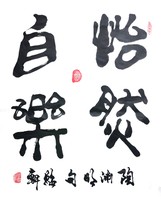 怡然
自樂
陶淵明句